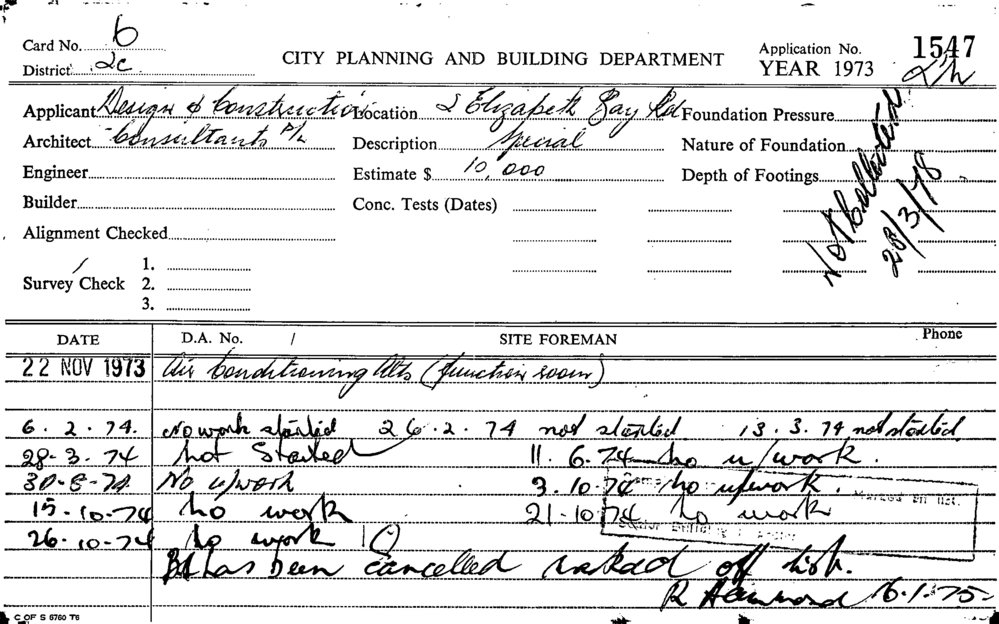 Card No. 6
District 2c
CITY PLANNING AND BUILDING DEPARTMENT
Application No. 1547
YEAR 1973
Applicant Design & Construction Location 2 Elizabeth Bay Rd Foundation Pressure
Architect Consultants P/L Description Special Nature of Foundation
Engineer Estimate $ 10,000 Depth of Footings
Builder Conc. Tests (Dates)
Not Collected 28/3/78
Alignment Checked
Survey Check 1.
2.
3.
DATE D.A. No. / SITE FOREMAN Phone
22 NOV 1973 Air Conditioning Alts (function room)
6.2.74. No work started 26.2.74 not started 13.3.74 not started.
28-3.74 not Started 11.6.74 no u/work.
30-8-74 No u/work 3.10.74 no u/work.
15-10-74 no work 21-10-74 no work
26-10-74 no work
BA has been cancelled marked off list.
R Hammond 6.1.75
C OF S 6760 T6